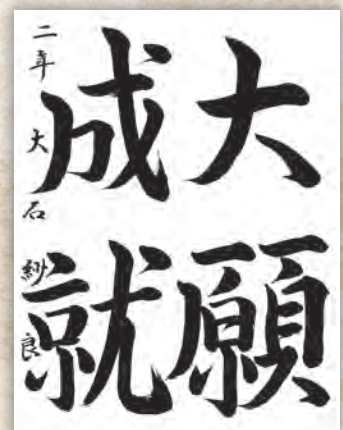 大願
成就
二年 大石 紗良